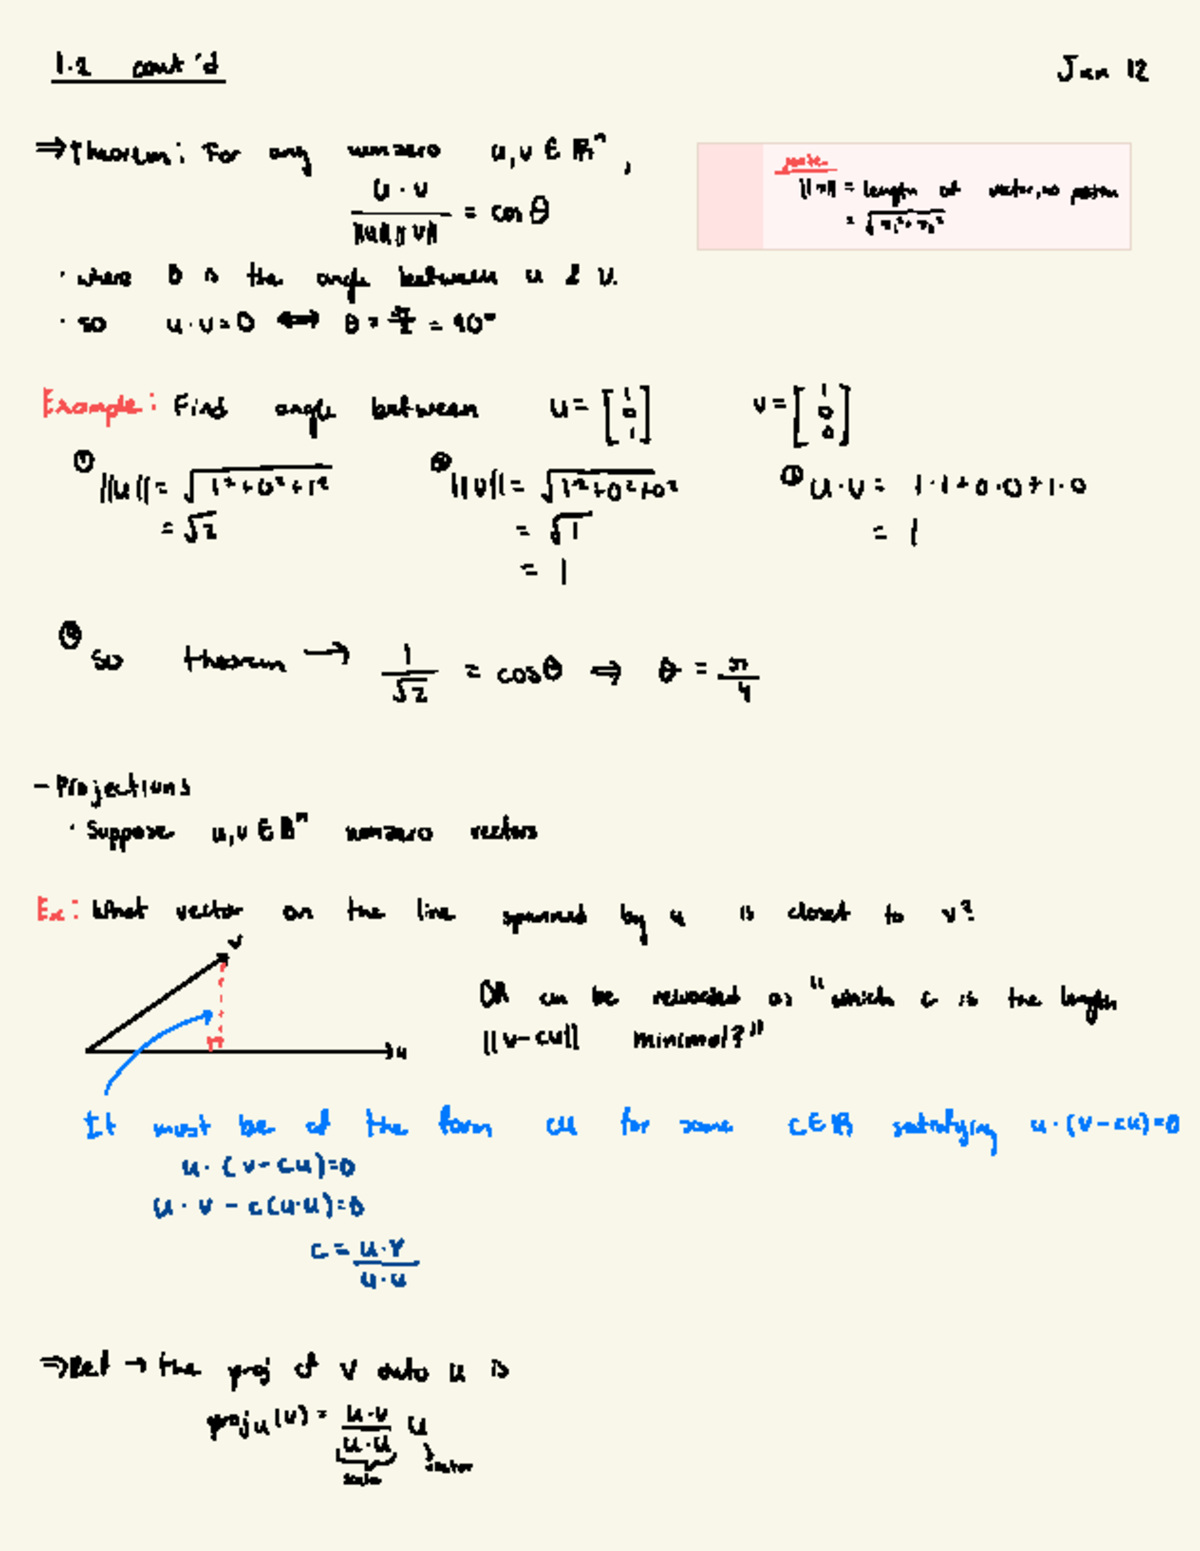 1.2 cont'd
Jan 12
⇒ Theorem: For any nonzero u,v ∈ ℝⁿ,
u · v / ||u|| ||v|| = cos θ
note:
||v|| = length of vector, no
= √v₁²+v₂²
· where θ is the angle between u & v.
· so u·v=0 ⟷ θ = π/2 = 90°
Example: Find angle between u = [1 0 1] v = [1 0 0]
① ||u|| = √1²+0²+1²
= √2
② ||v|| = √1²+0²+0²
= √1
= 1
③ u·v = 1·1+0·0+1·0
= 1
④ so theorem → 1/√2 = cosθ ⇒ θ = π/4
- Projections
· Suppose u,v ∈ ℝⁿ nonzero vectors
Ex: What vector on the line spanned by u is closet to v?
v
u
OR can be reworded as "which c is the length
||v-cu|| minimal?"
It must be of the form cu for some c∈ℝ satisfying u·(v-cu)=0
u·(v-cu)=0
u·v - c(u·u)=0
c = u·v / u·u
⇒ Def → the proj of v onto u is
proj u (v) = u·v / u·u u
scalar
vector